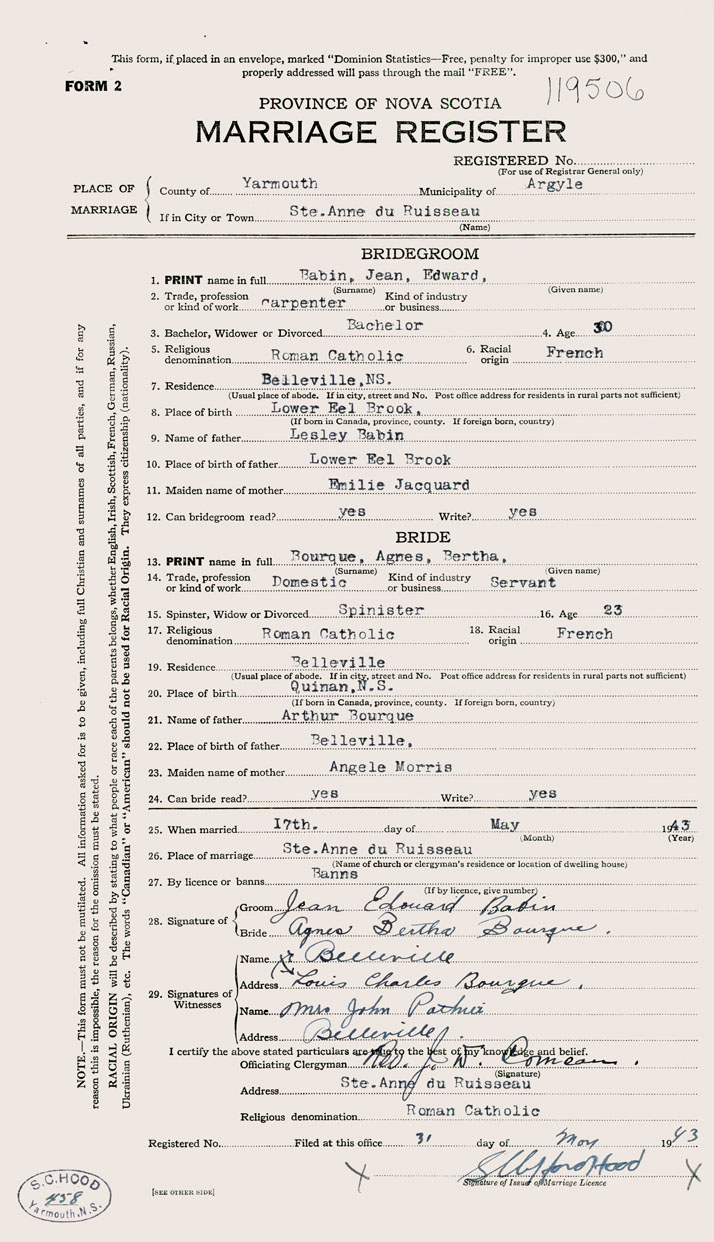 This form, if placed in an envelope, marked "Dominion Statistics—Free, penalty for improper use $300," and
properly addressed will pass through the mail "FREE".
FORM 2
119506
PROVINCE OF NOVA SCOTIA
MARRIAGE REGISTER
REGISTERED No.
(For use of Registrar General only)
PLACE OF MARRIAGE
County of Yarmouth Municipality of Argyle
If in City or Town Ste.Anne du Ruisseau
(Name)
BRIDEGROOM
1. PRINT name in full Babin, Jean, Edward,
(Surname) (Given name)
2. Trade, profession or kind of work carpenter Kind of industry or business
3. Bachelor, Widower or Divorced Bachelor 4. Age 30
5. Religious denomination Roman Catholic 6. Racial origin French
7. Residence Belleville,NS.
(Usual place of abode. If in city, street and No. Post office address for residents in rural parts not sufficient)
8. Place of birth Lower Eel Brook,
(If born in Canada, province, county. If foreign born, country)
9. Name of father Lesley Babin
10. Place of birth of father Lower Eel Brook
11. Maiden name of mother Emilie Jacquard
12. Can bridegroom read? yes Write? yes
BRIDE
13. PRINT name in full Bourque, Agnes, Bertha,
(Surname) (Given name)
14. Trade, profession or kind of work Domestic Kind of industry or business Servant
15. Spinster, Widow or Divorced Spinister 16. Age 23
17. Religious denomination Roman Catholic 18. Racial origin French
19. Residence Belleville
(Usual place of abode. If in city, street and No. Post office address for residents in rural parts not sufficient)
20. Place of birth Quinan,N.S.
(If born in Canada, province, county. If foreign born, country)
21. Name of father Arthur Bourque
22. Place of birth of father Belleville,
23. Maiden name of mother Angele Morris
24. Can bride read? yes Write? yes
25. When married I7th. day of May 1943
(Month) (Year)
26. Place of marriage Ste.Anne du Ruisseau
(Name of church or clergyman's residence or location of dwelling house)
27. By licence or banns Banns
(If by licence, give number)
28. Signature of
Groom Jean Edouard Babin
Bride Agnes Bertha Bourque.
29. Signatures of Witnesses
Name Belleville
Address Louis Charles Bourque,
Name Mrs John
Address Belleville.
I certify the above stated particulars are true to the best of my knowledge and belief.
Officiating Clergyman Rev. J. W. Comeau.
(Signature)
Address Ste.Anne du Ruisseau
Religious denomination Roman Catholic
Registered No. Filed at this office 31 day of May 1943
Signature of Issuer of Marriage Licence
[SEE OTHER SIDE]
S.C.HOOD
458
Yarmouth,N.S.
NOTE.—This form must not be mutilated. All information asked for is to be given, including full Christian and surnames of all parties, and if for any
reason this is impossible, the reason for the omission must be stated.
RACIAL ORIGIN will be described by stating to what people or race each of the parents belongs, whether English, Irish, Scottish, French, German, Russian,
Ukrainian (Ruthenian), etc. The words "Canadian" or "American" should not be used for Racial Origin. They express citizenship (nationality).